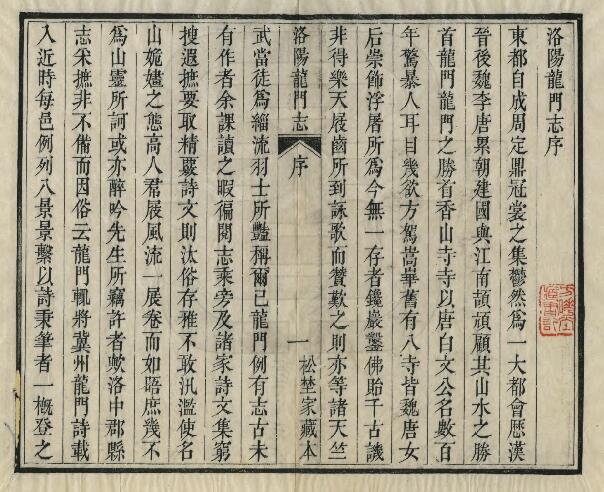 洛陽龍門志序
東都自成周定鼎冠裳之集鬱然爲一大都會歷漢
晉後魏李唐累朝建國與江南頡頏顧其山水之勝
首龍門龍門之勝首香山寺寺以唐白文公名數百
年驚暴人耳目幾欲方駕嵩華舊有八寺皆魏唐女
后崇飾浮屠所爲今無一存者鑱巖鑿佛貽千古譏
非得樂天屐齒所到詠歌而贊歎之則亦等諸天竺
洛陽龍門志
序
一
松埜家藏本
武當徒爲緇流羽士所豔稱爾已龍門例有志古未
有作者余課讀之暇徧閱志乘旁及諸家詩文集窮
搜遐摭要取精覈詩文則汰俗存雅不敢汎濫使名
山姽嫿之態高人君屐風流一展卷而如晤庶幾不
爲山靈所訶或亦醉吟先生所竊許者歟洛中郡縣
志采摭非不備而因俗云龍門輒將冀州龍門詩載
入近時每邑例列八景景繫以詩秉筆者一概登之